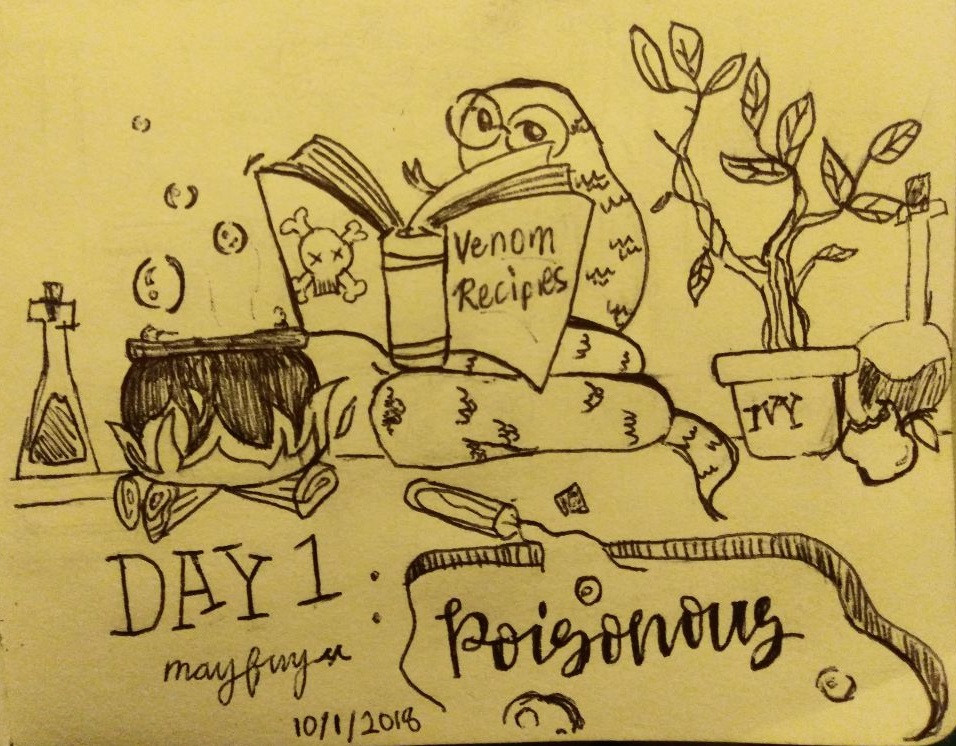 Venom
Recipies
IVY
DAY 1:
Poisonous
10/1/2018